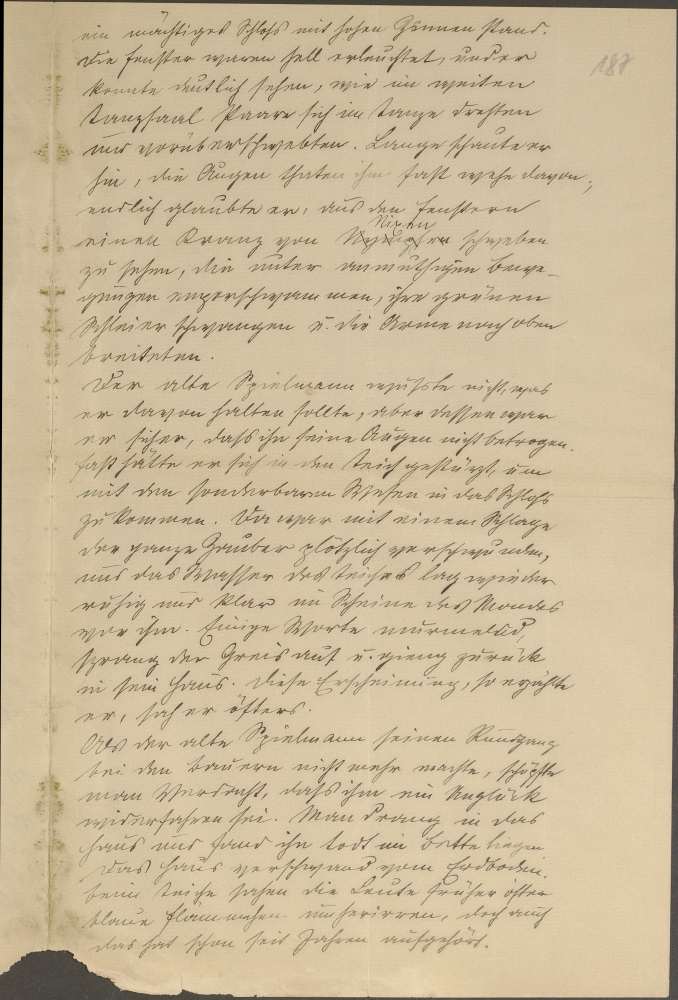 187
ein mächtiges Schloß mit hohen Zinnen stand.
Die Fenster waren hell erleuchtet, und er
konnte deutlich sehen, wie im weiten
Tanzsaal Paare sich im Tanze drehten
und vorüberschwebten. Lange schaute er
hin, die Augen thaten ihm fast wehe davon;
endlich glaubte er, aus den Fenstern
Nixen
einen Kranz von schweben
zu sehen, die unter anmuthigen Bewe-
gungen emporschwammen, ihre grünen
Schleier schwangen u. die Arme nach oben
breiteten.
Der alte Spielmann wußste nicht, was
er davon halten sollte, aber dessen war
er sicher, daß ihn seine Augen nicht betrogen.
Fast hätte er sich in den Teich gestürzt, um
mit den sonderbaren Wesen in das Schloß
zu kommen. Da war mit einem Schlage
der ganze Zauber plötzlich verschwunden,
und das Wasser des Teiches lag wieder
ruhig und klar im Scheine des Mondes
vor ihm. Einige Worte murmelnd,
sprang der Greis auf u. gieng zurück
in sein Haus. Diese Erscheinung, so erzählte
er, sah er öfters.
Als der alte Spielmann seinen Rundgang
bei den Bauern nicht mehr machte, schöpfte
man Verdacht, daß ihm ein Unglück
widerfahren sei. Man drang in das
Haus und fand ihn todt im Bette liegen.
Das Haus verschwand vom Erdboden.
Beim Teiche sahen die Leute früher öfter
blaue Flämmchen umherirren, doch auch
das hat schon seit Jahren aufgehört.